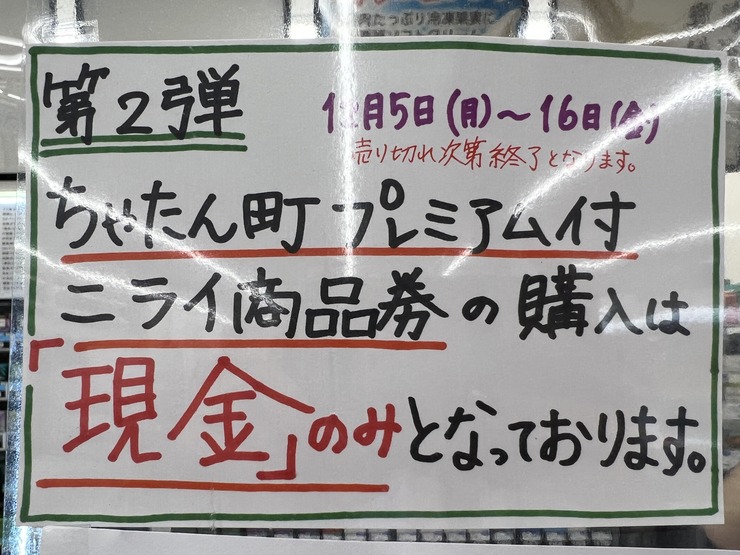 内たっぷり冷凍果実に
第2弾
12月5日(月)～16日(金)
売り切れ次第終了となります。
ちゃたん町プレミアム付
ニライ商品券の購入は
「現金」のみとなっております。